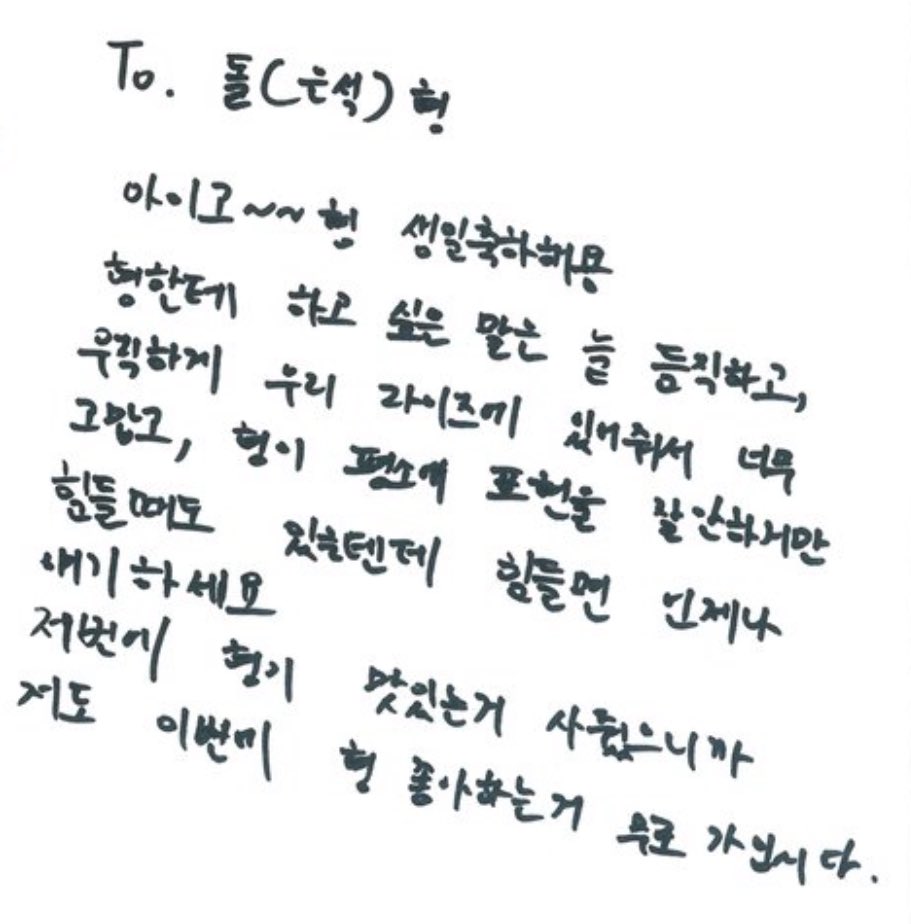 To. 돌(은석)형
아이고~~ 형 생일축하해용
형한테 하고 싶은 말은 늘 듬직하고,
우직하게 우리 라이즈에 있어줘서 너무
고맙고, 형이 평소에 표현을 잘 안하지만
힘들때도 있을텐데 힘들면 언제나
얘기하세요
저번에 형이 맛있는거 사줬으니까
저도 이번에 형 좋아하는거 쏘러 가입시다.